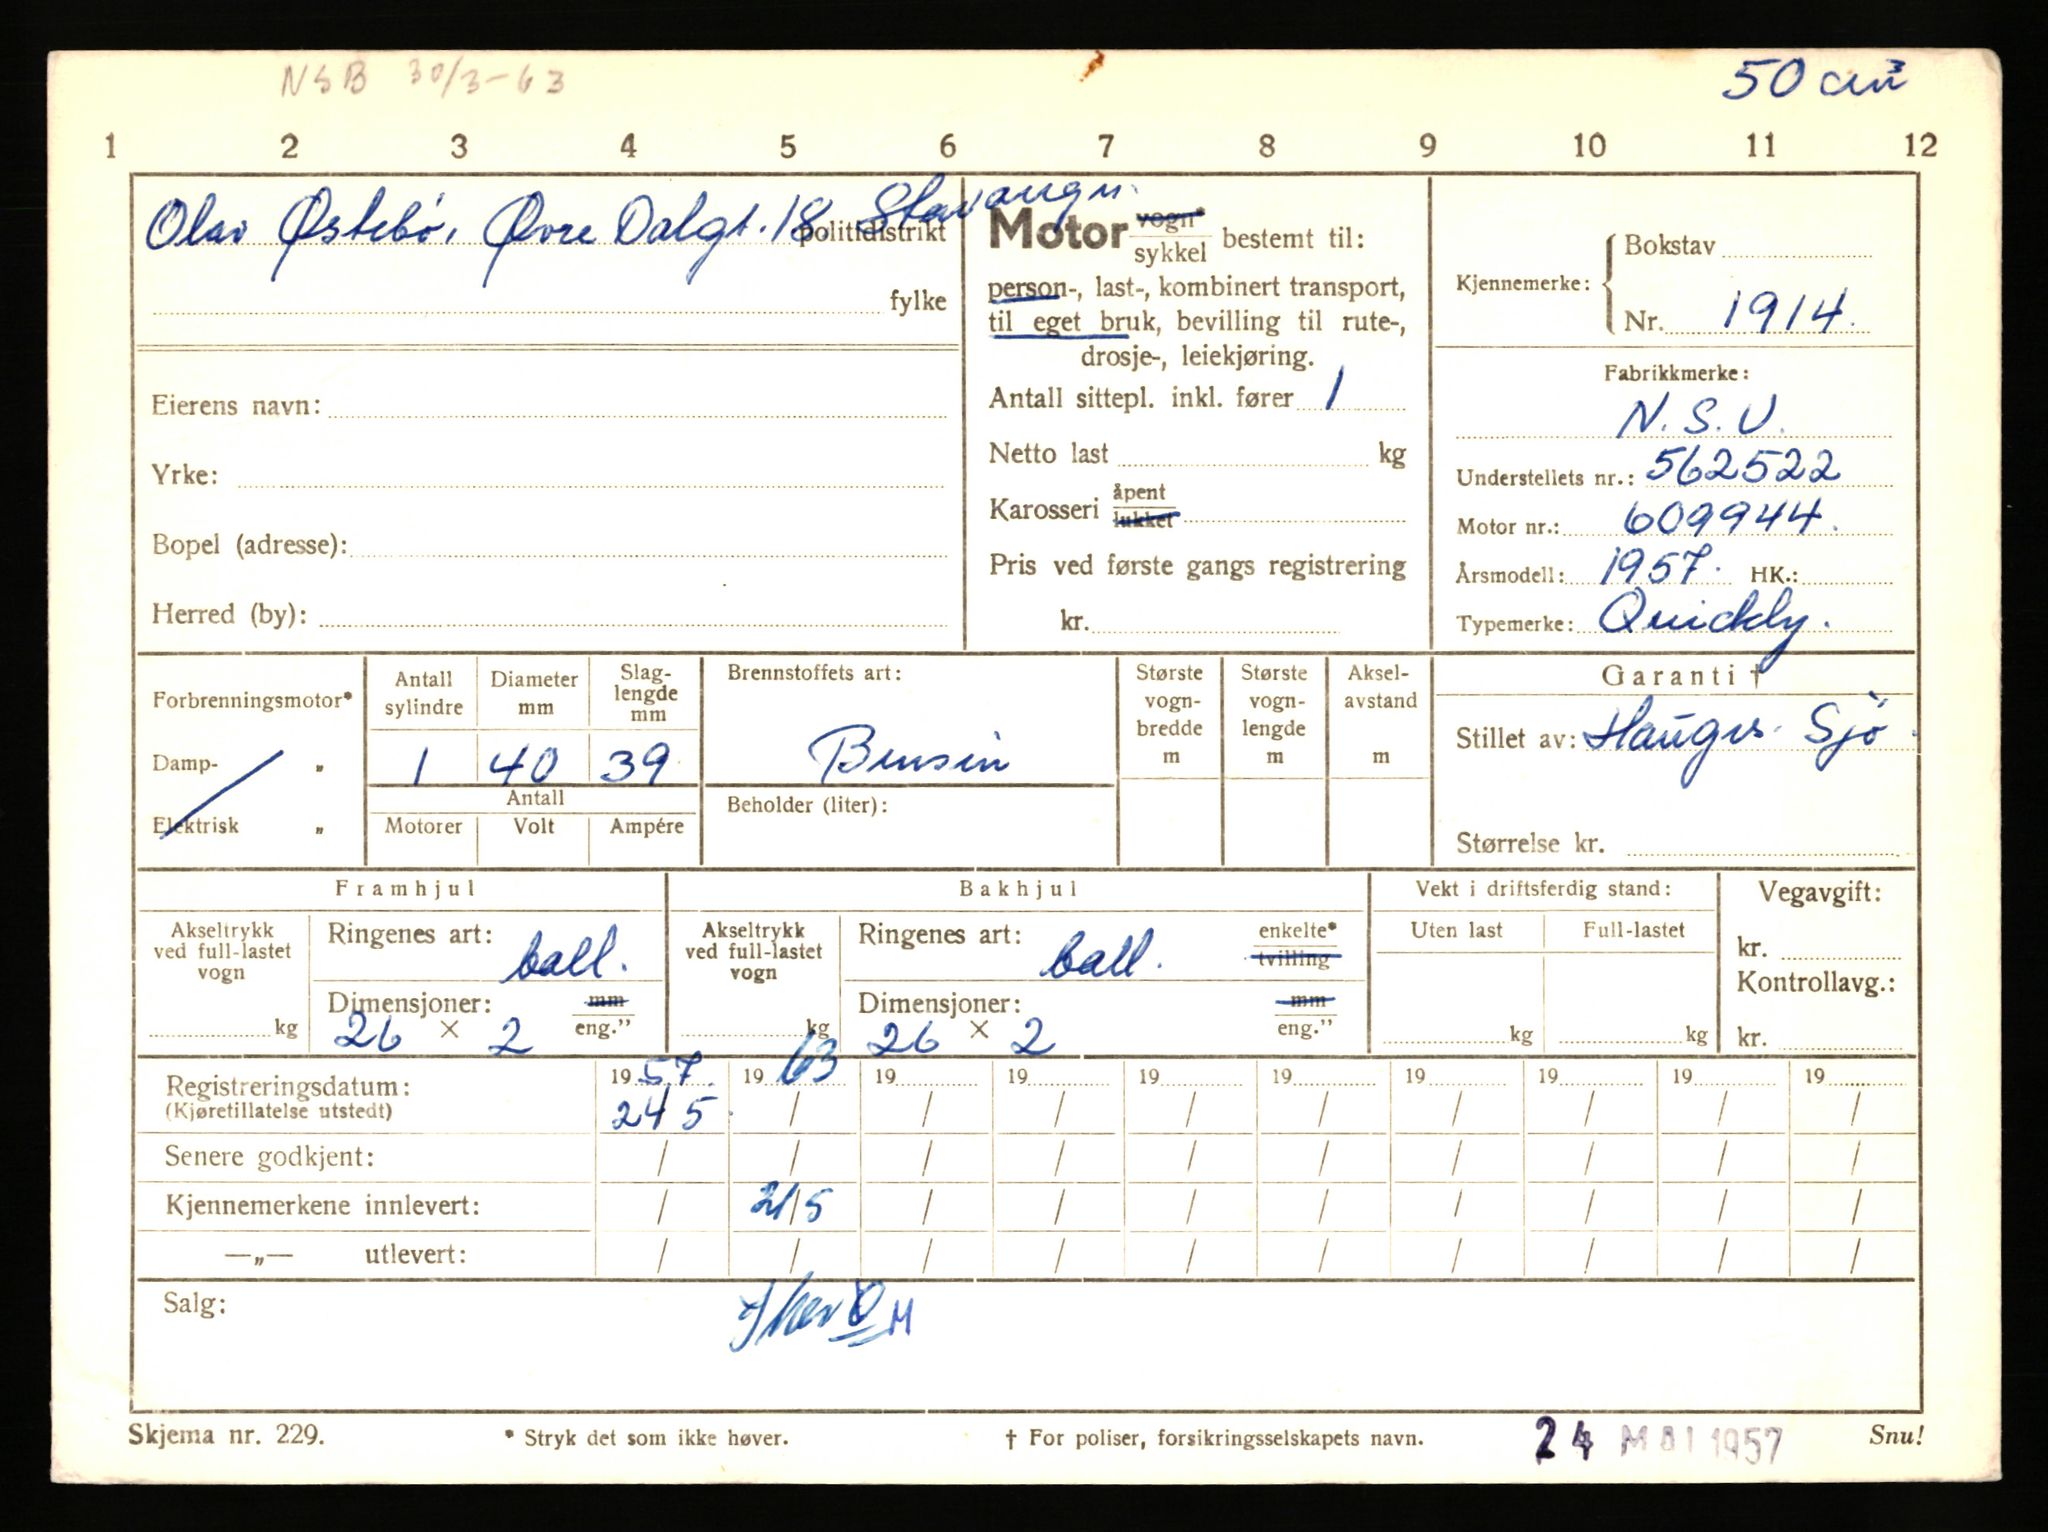 NSB 30/3-63
50 cm³
1 2 3 4 5 6 7 8 9 10 11 12
Olav Østebø, Øvre Dalgt. 18 Stavanger.
politidistrikt
fylke
Eierens navn:
Yrke:
Bopel (adresse):
Herred (by):
Motor vogn*
sykkel bestemt til:
person-, last-, kombinert transport,
til eget bruk, bevilling til rute-,
drosje-, leiekjøring.
Antall sittepl. inkl. fører 1
Netto last kg
Karosseri åpent
lukket
Pris ved første gangs registrering
kr.
Kjennemerke: Bokstav
Nr. 1914.
Fabrikkmerke:
N.S.U.
Understellets nr.: 562522
Motor nr.: 609944.
Årsmodell: 1957. HK.:
Typemerke: Quickly.
Forbrenningsmotor*
Damp- „
Elektrisk „
Antall sylindre
Diameter mm
Slag-
lengde
mm
1 40 39
Antall
Motorer Volt Ampére
Brennstoffets art:
Bensin
Beholder (liter):
Største
vogn-
bredde
m
Største
vogn-
lengde
m
Aksel-
avstand
m
Garanti †
Stillet av: Sjø.
Størrelse kr.
Framhjul
Akseltrykk
ved full-lastet
vogn
kg
Ringenes art: ball.
Dimensjoner: mm
26 × 2 eng.”
Bakhjul
Akseltrykk
ved full-lastet
vogn
kg
Ringenes art: ball. enkelte*
tvilling
Dimensjoner: mm
26 × 2 eng.”
Vekt i driftsferdig stand:
Uten last Full-lastet
kg kg
Vegavgift:
kr.
Kontrollavg.:
kr.
Registreringsdatum: 1957. 1963 19 19 19 19 19 19 19 19
(Kjøretillatelse utstedt) 24/5 / / / / / / / / /
Senere godkjent: / / / / / / / / / /
Kjennemerkene innlevert: / 21/5 / / / / / / / /
—„— utlevert: / / / / / / / / / /
Salg:
Skjema nr. 229. * Stryk det som ikke høver. † For poliser, forsikringsselskapets navn. 24 MAI 1957 Snu!